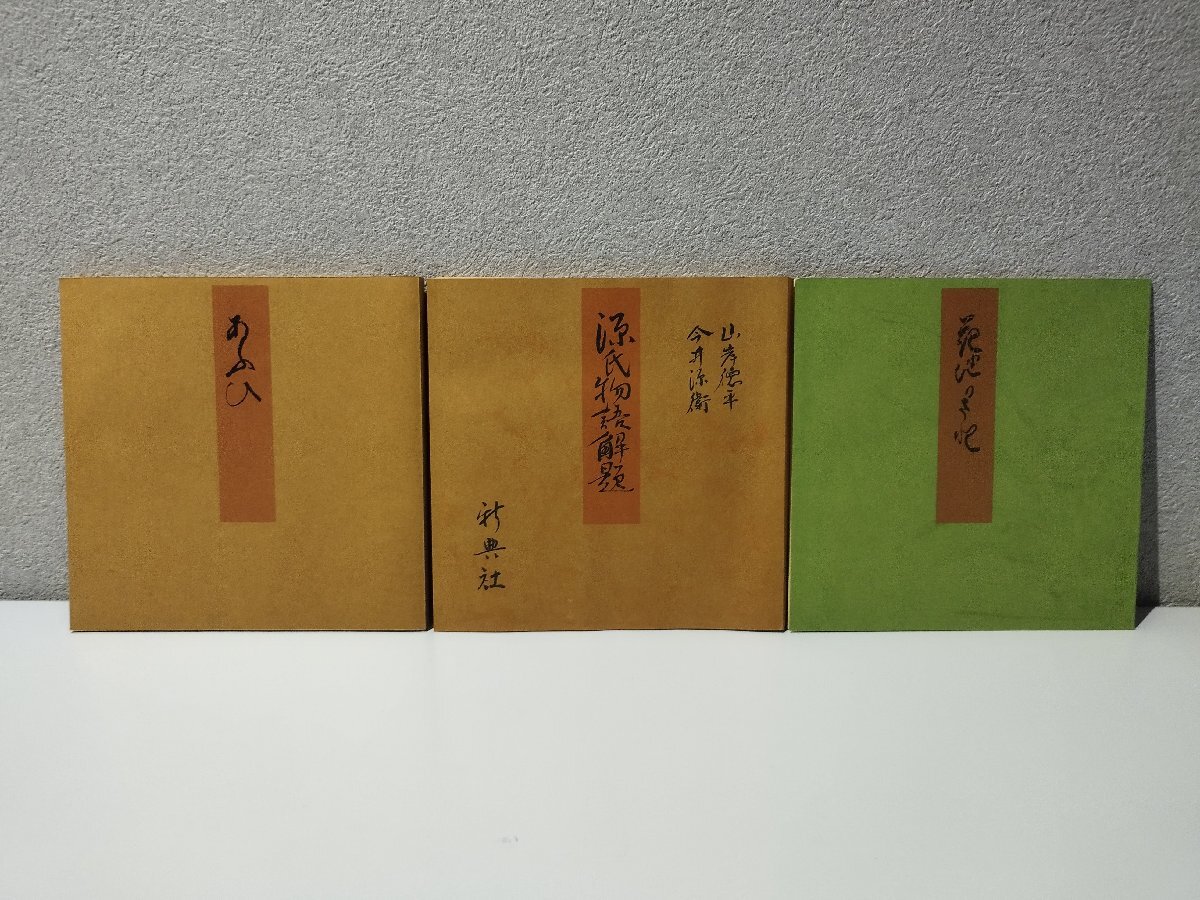 あふひ
山岸徳平
今井源衛
源氏物語解題
新典社